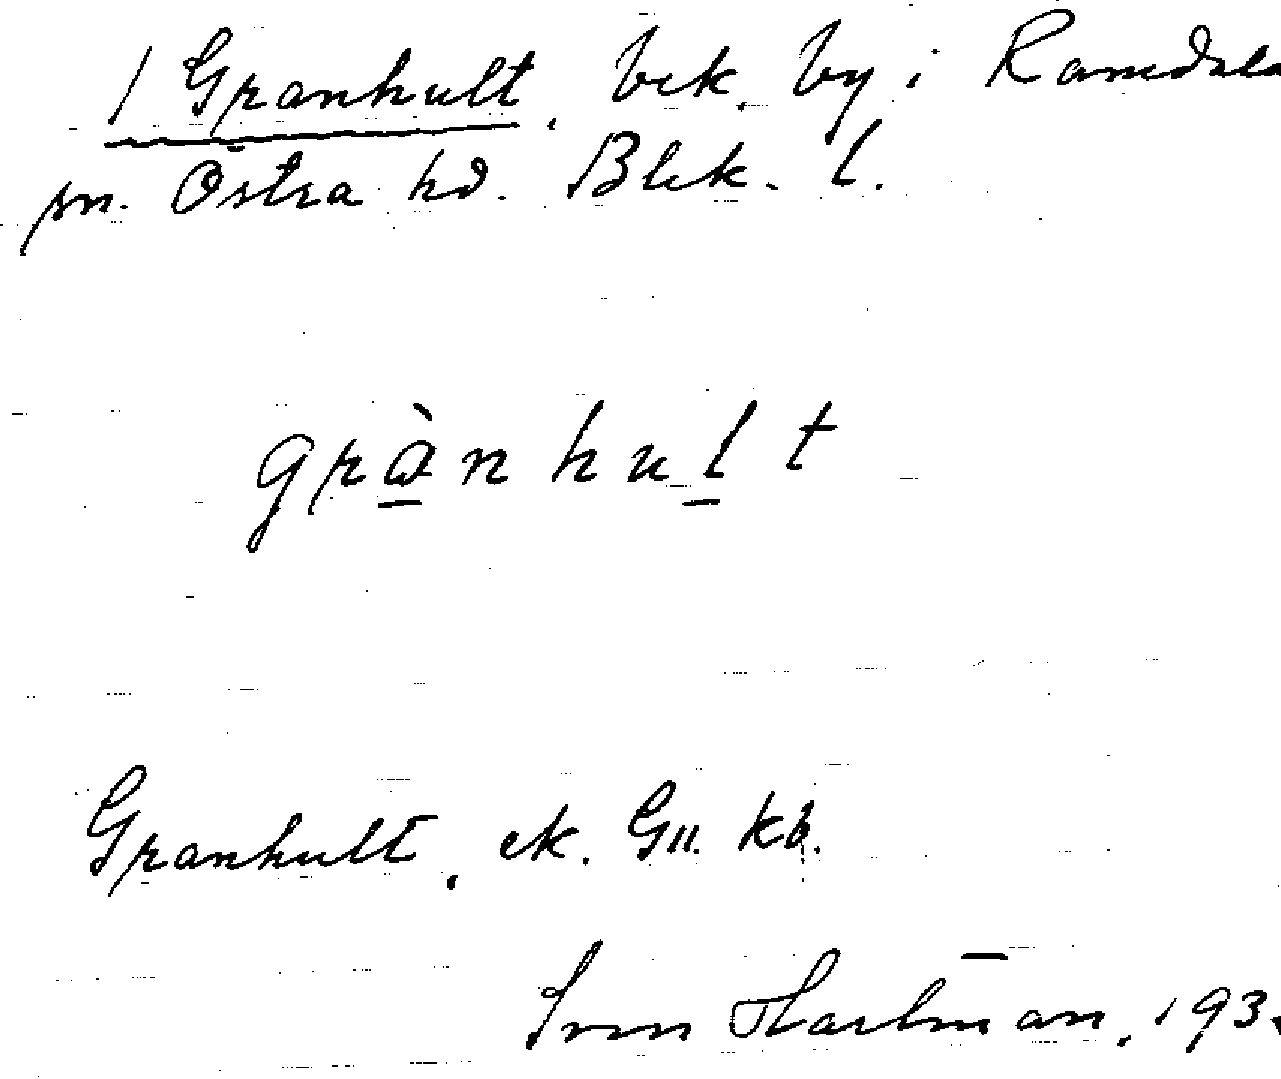 / Granhult, bek. by i Ramdala
sn. Östra hd. Blek. l.
grànhult
Granhult, ek. G11. kb.
Sven Hartman, 193